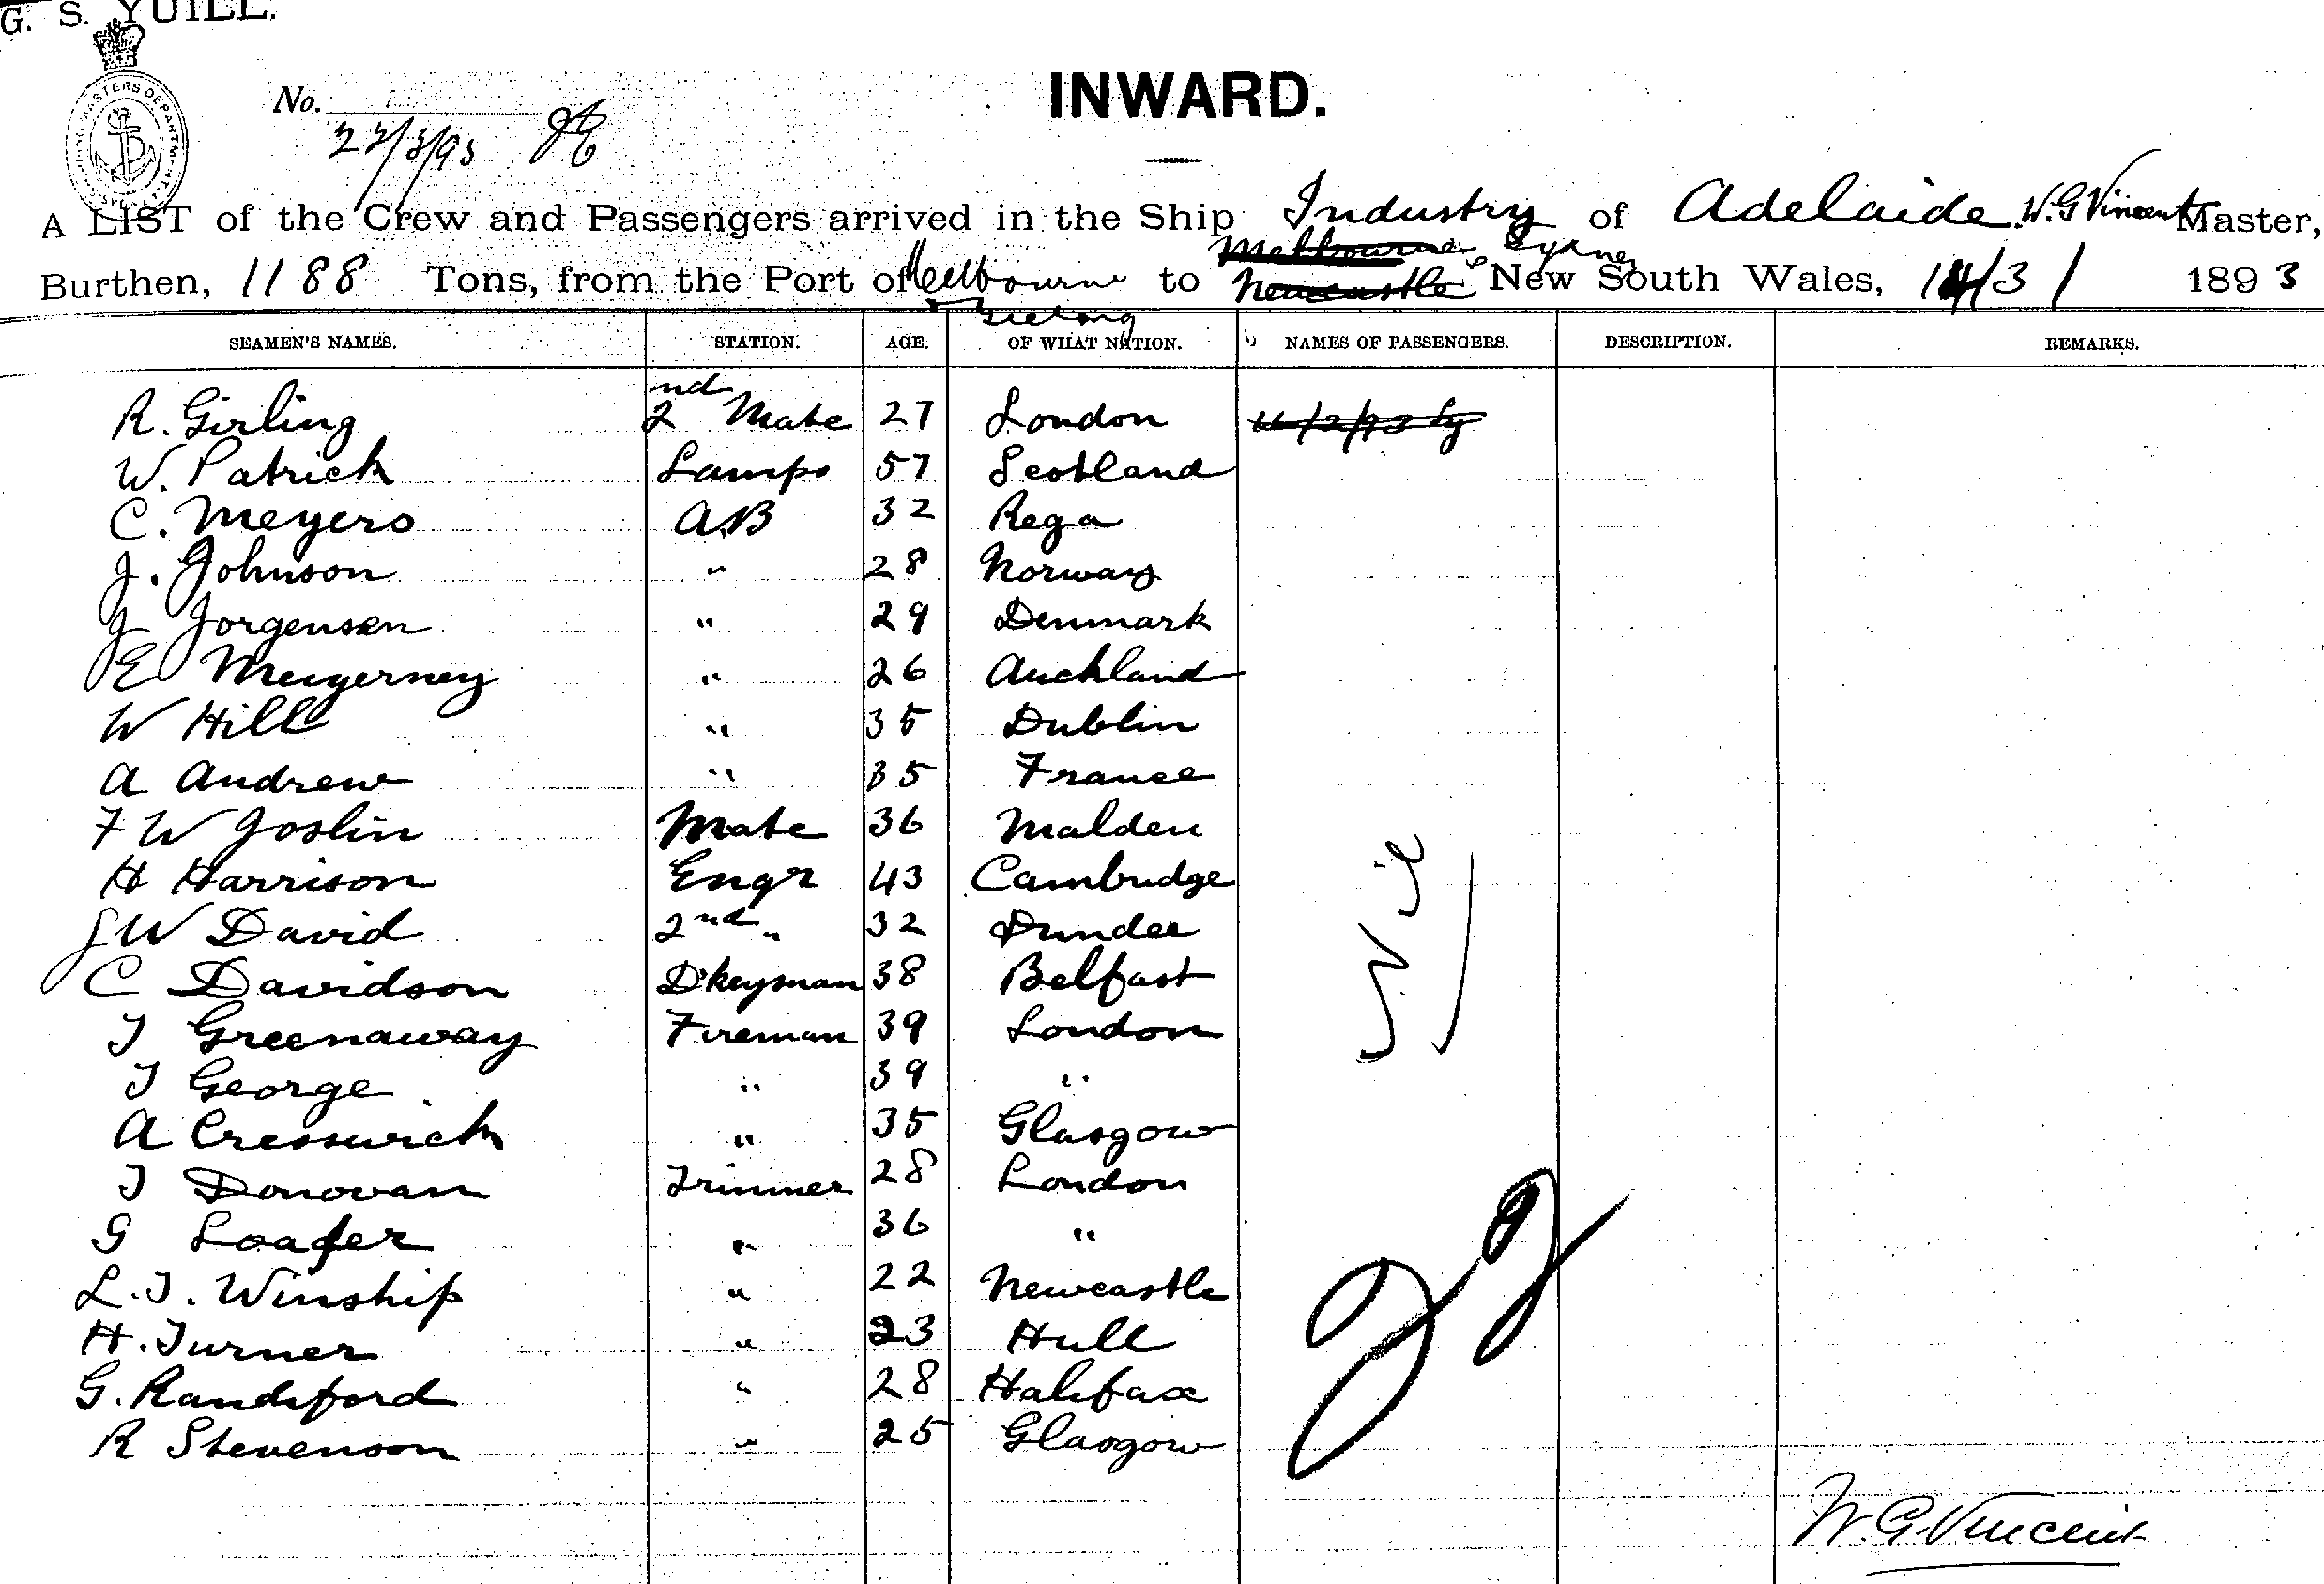 G. S. YUILL.
No.
INWARD.
22/3/93
A LIST of the Crew and Passengers arrived in the Ship Industry of Adelaide. W. G Vincent Master,
Melbourne Sydney
Burthen, 1188 Tons, from the Port of Melbourne to Newcastle New South Wales, 14/3/ 1893
Geelong
SEAMEN'S NAMES. STATION. AGE. OF WHAT NATION. NAMES OF PASSENGERS. DESCRIPTION. REMARKS.
R. Girling 2nd Mate 27 London
W. Patrick Lamps 57 Scotland
C. Meyers AB 32 Rega
J. Johnson " 28 Norway
J Jorgensen " 29 Denmark
E " 26 Auckland
W Hill " 35 Dublin
A Andrew " 35 France
F W Joslin Mate 36 Malden
H Harrison Engr 43 Cambridge
J W David 2nd " 32 Dundee
C Davidson D'keyman 38 Belfast
T Greenaway Fireman 39 London
T George " 39 "
A Cresswick " 35 Glasgow
T Donovan Trimmer 28 London
G Loafer " 36 "
L. T. Winship " 22 Newcastle
H. Turner " 23 Hull
G. Randsford " 28 Halifax
R Stevenson " 25 Glasgow
Nil
W. G. Vincent